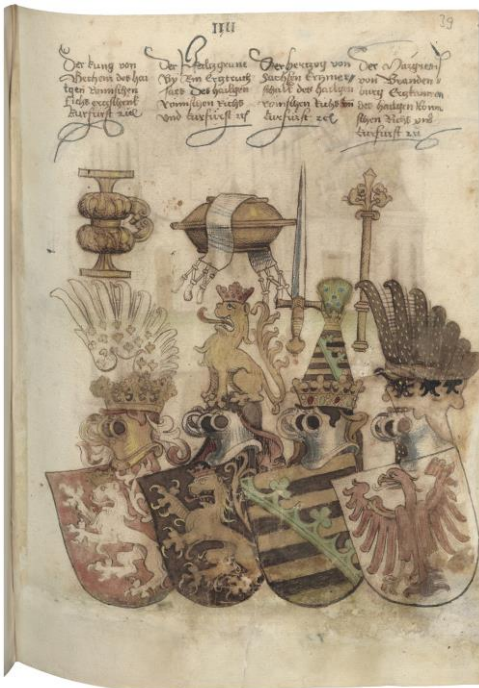 IIII
29
Der kung von
Bechem des hai
ligen Romischen
Richs ertzschenk
kurfurst etc
Der Pfaltzgraue
By Rin Ertztruch
sas Des hailigen
Romischen Richs
vnd kurfürst etc
Der hertzog von
Sachsen Ertzmar
schalk des hailigen
Romischen Richs vn
kurfürst etc
Der Margraff
von Branden
burg Ertzkamrer
des hailigen Romi
schen Richs vnd
kurfürst etc